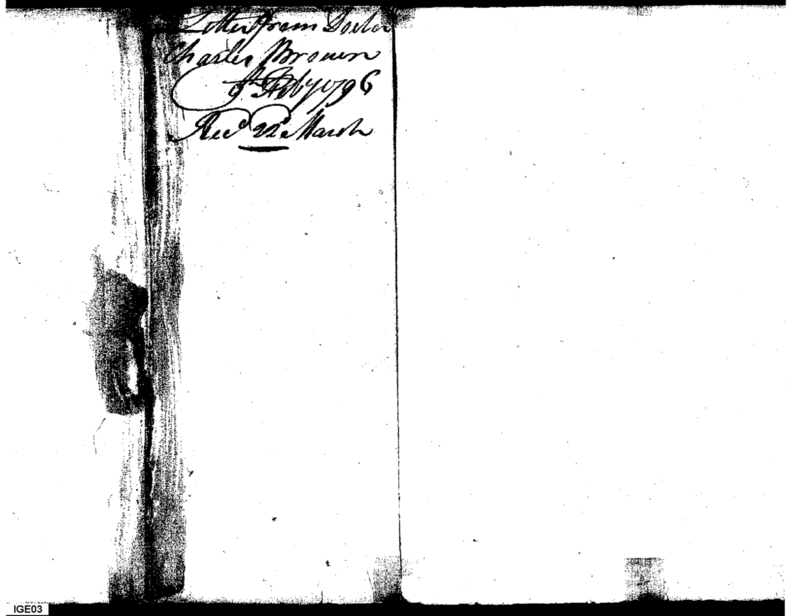 Letter from Doctor
Charles Brown
9th Feby 1796
Recd 22d March
IGE03